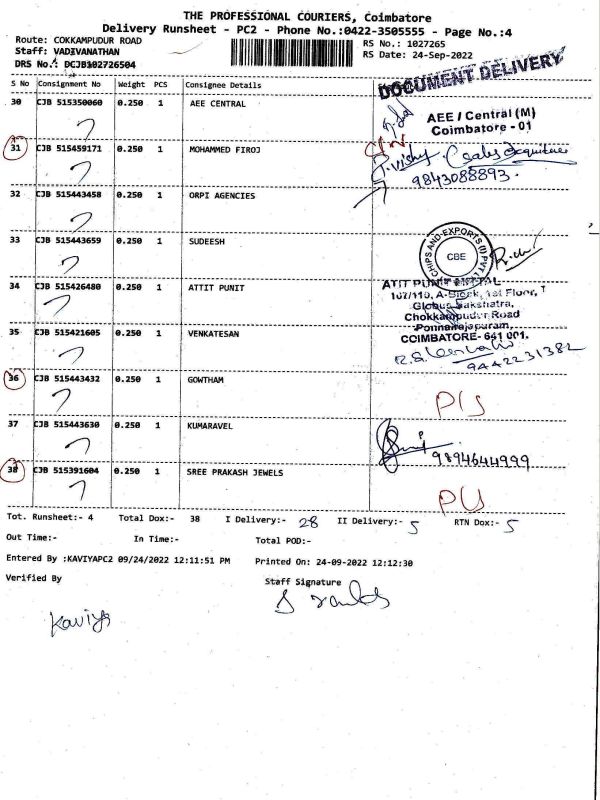 THE PROFESSIONAL COURIERS, Coimbatore
Delivery Runsheet - PC2 - Phone No.:0422-3505555 - Page No.:4
Route: COKKAMPUDUR ROAD
RS No.: 1027265
Staff: VADIVANATHAN
RS Date: 24-Sep-2022
DRS No.: DCJB102726504
DOCUMENT DELIVERY
S No Consignment No Weight PCS Consignee Details
30 CJB 515350060 0.250 1 AEE CENTRAL
AEE / Central (M)
Coimbatore - 01
31 CJB 515459171 0.250 1 MOHAMMED FIROJ
9843088893.
32 CJB 515443458 0.250 1 ORPI AGENCIES
33 CJB 515443659 0.250 1 SUDEESH
CHIPS AND EXPORTS (I) PVT
CBE
34 CJB 515426480 0.250 1 ATTIT PUNIT
107/110, A-Block, 1st Floor,
Chokkampudur Road
Ponnairajapuram,
COIMBATORE- 641 001.
35 CJB 515421605 0.250 1 VENKATESAN
9442231382
36 CJB 515443432 0.250 1 GOWTHAM
37 CJB 515443630 0.250 1 KUMARAVEL
9894644999
38 CJB 515391604 0.250 1 SREE PRAKASH JEWELS
Tot. Runsheet:- 4 Total Dox:- 38 I Delivery:- 28 II Delivery:- 5 RTN Dox:- 5
Out Time:- In Time:- Total POD:-
Entered By :KAVIYAPC2 09/24/2022 12:11:51 PM Printed On: 24-09-2022 12:12:30
Verified By Staff Signature
Kaviya